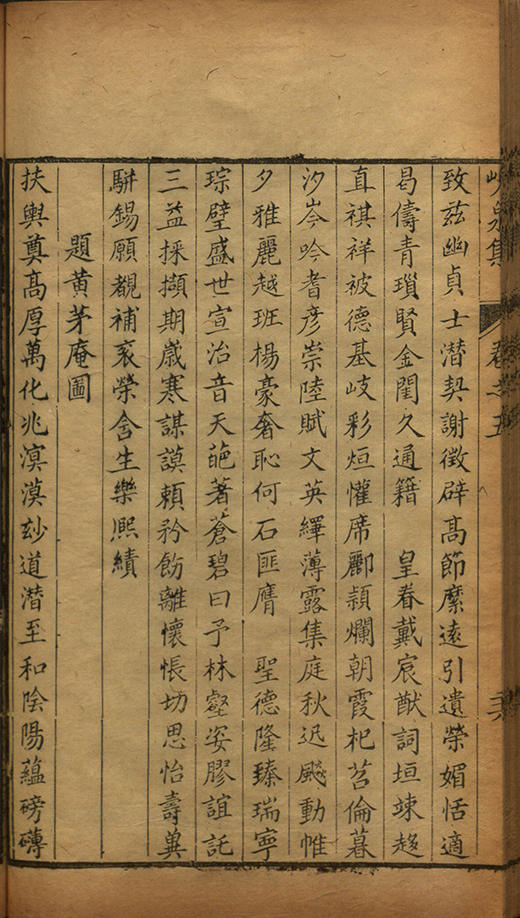 峴泉集 卷之五
致茲幽貞士潛契謝徵辟高節縻遠引遺榮媚恬適
曷儔青瑣賢金閨久通籍　皇眷戴宸猷詞垣竦趨
直祺祥被德基岐彩烜懽席酈頴爛朝霞杞苕倫暮
汐岑吟耆彥崇陸賦文英繹薄露集庭秋迅颷動帷
夕雅麗越班楊豪奢恥何石匪膺　聖德隆臻瑞寧
琮璧盛世宣治音天葩著蒼碧曰予林壑姿膠誼託
三益採擷期歲寒謀謨賴矜飭離懷悵切思怡壽奠
駢錫願覩補袞榮含生樂熙績
題黃茅庵圖
扶輿奠高厚萬化兆溟漠玅道潛至和陰陽蘊磅礴